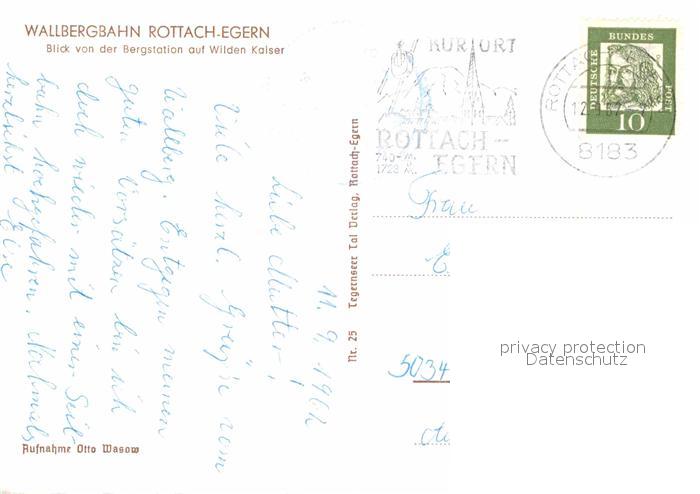 WALLBERGBAHN ROTTACH-EGERN
Blick von der Bergstation auf Wilden Kaiser
11. 9. 1962
Liebe Mutter!
Viele herzl. Grüße vom
Wallberg. Entgegen meinen
guten Vorsätzen bin ich
doch wieder mit einer Seil-
bahn hochgefahren. Nochmals
herzlichst
Aufnahme Otto Wasow
Nr. 25 Tegernseer Tal Verlag, Rottach-Egern
KURORT
ROTTACH-
EGERN
740 m.
1722 M.
ROTTACH
8183
DEUTSCHE BUNDES POST
10
Frau
E.
5034
privacy protection
Datenschutz